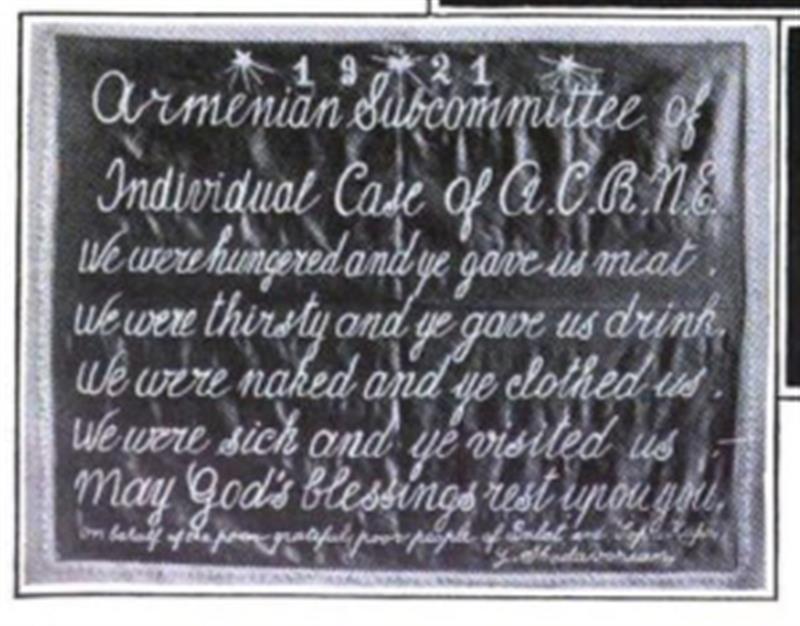 1921
Armenian Subcommittee of
Individual Case of A.C.R.N.E.
We were hungered and ye gave us meat.
We were thirsty and ye gave us drink.
We were naked and ye clothed us.
We were sick and ye visited us.
May God's blessings rest upon you.
On behalf of the poor grateful poor people of and